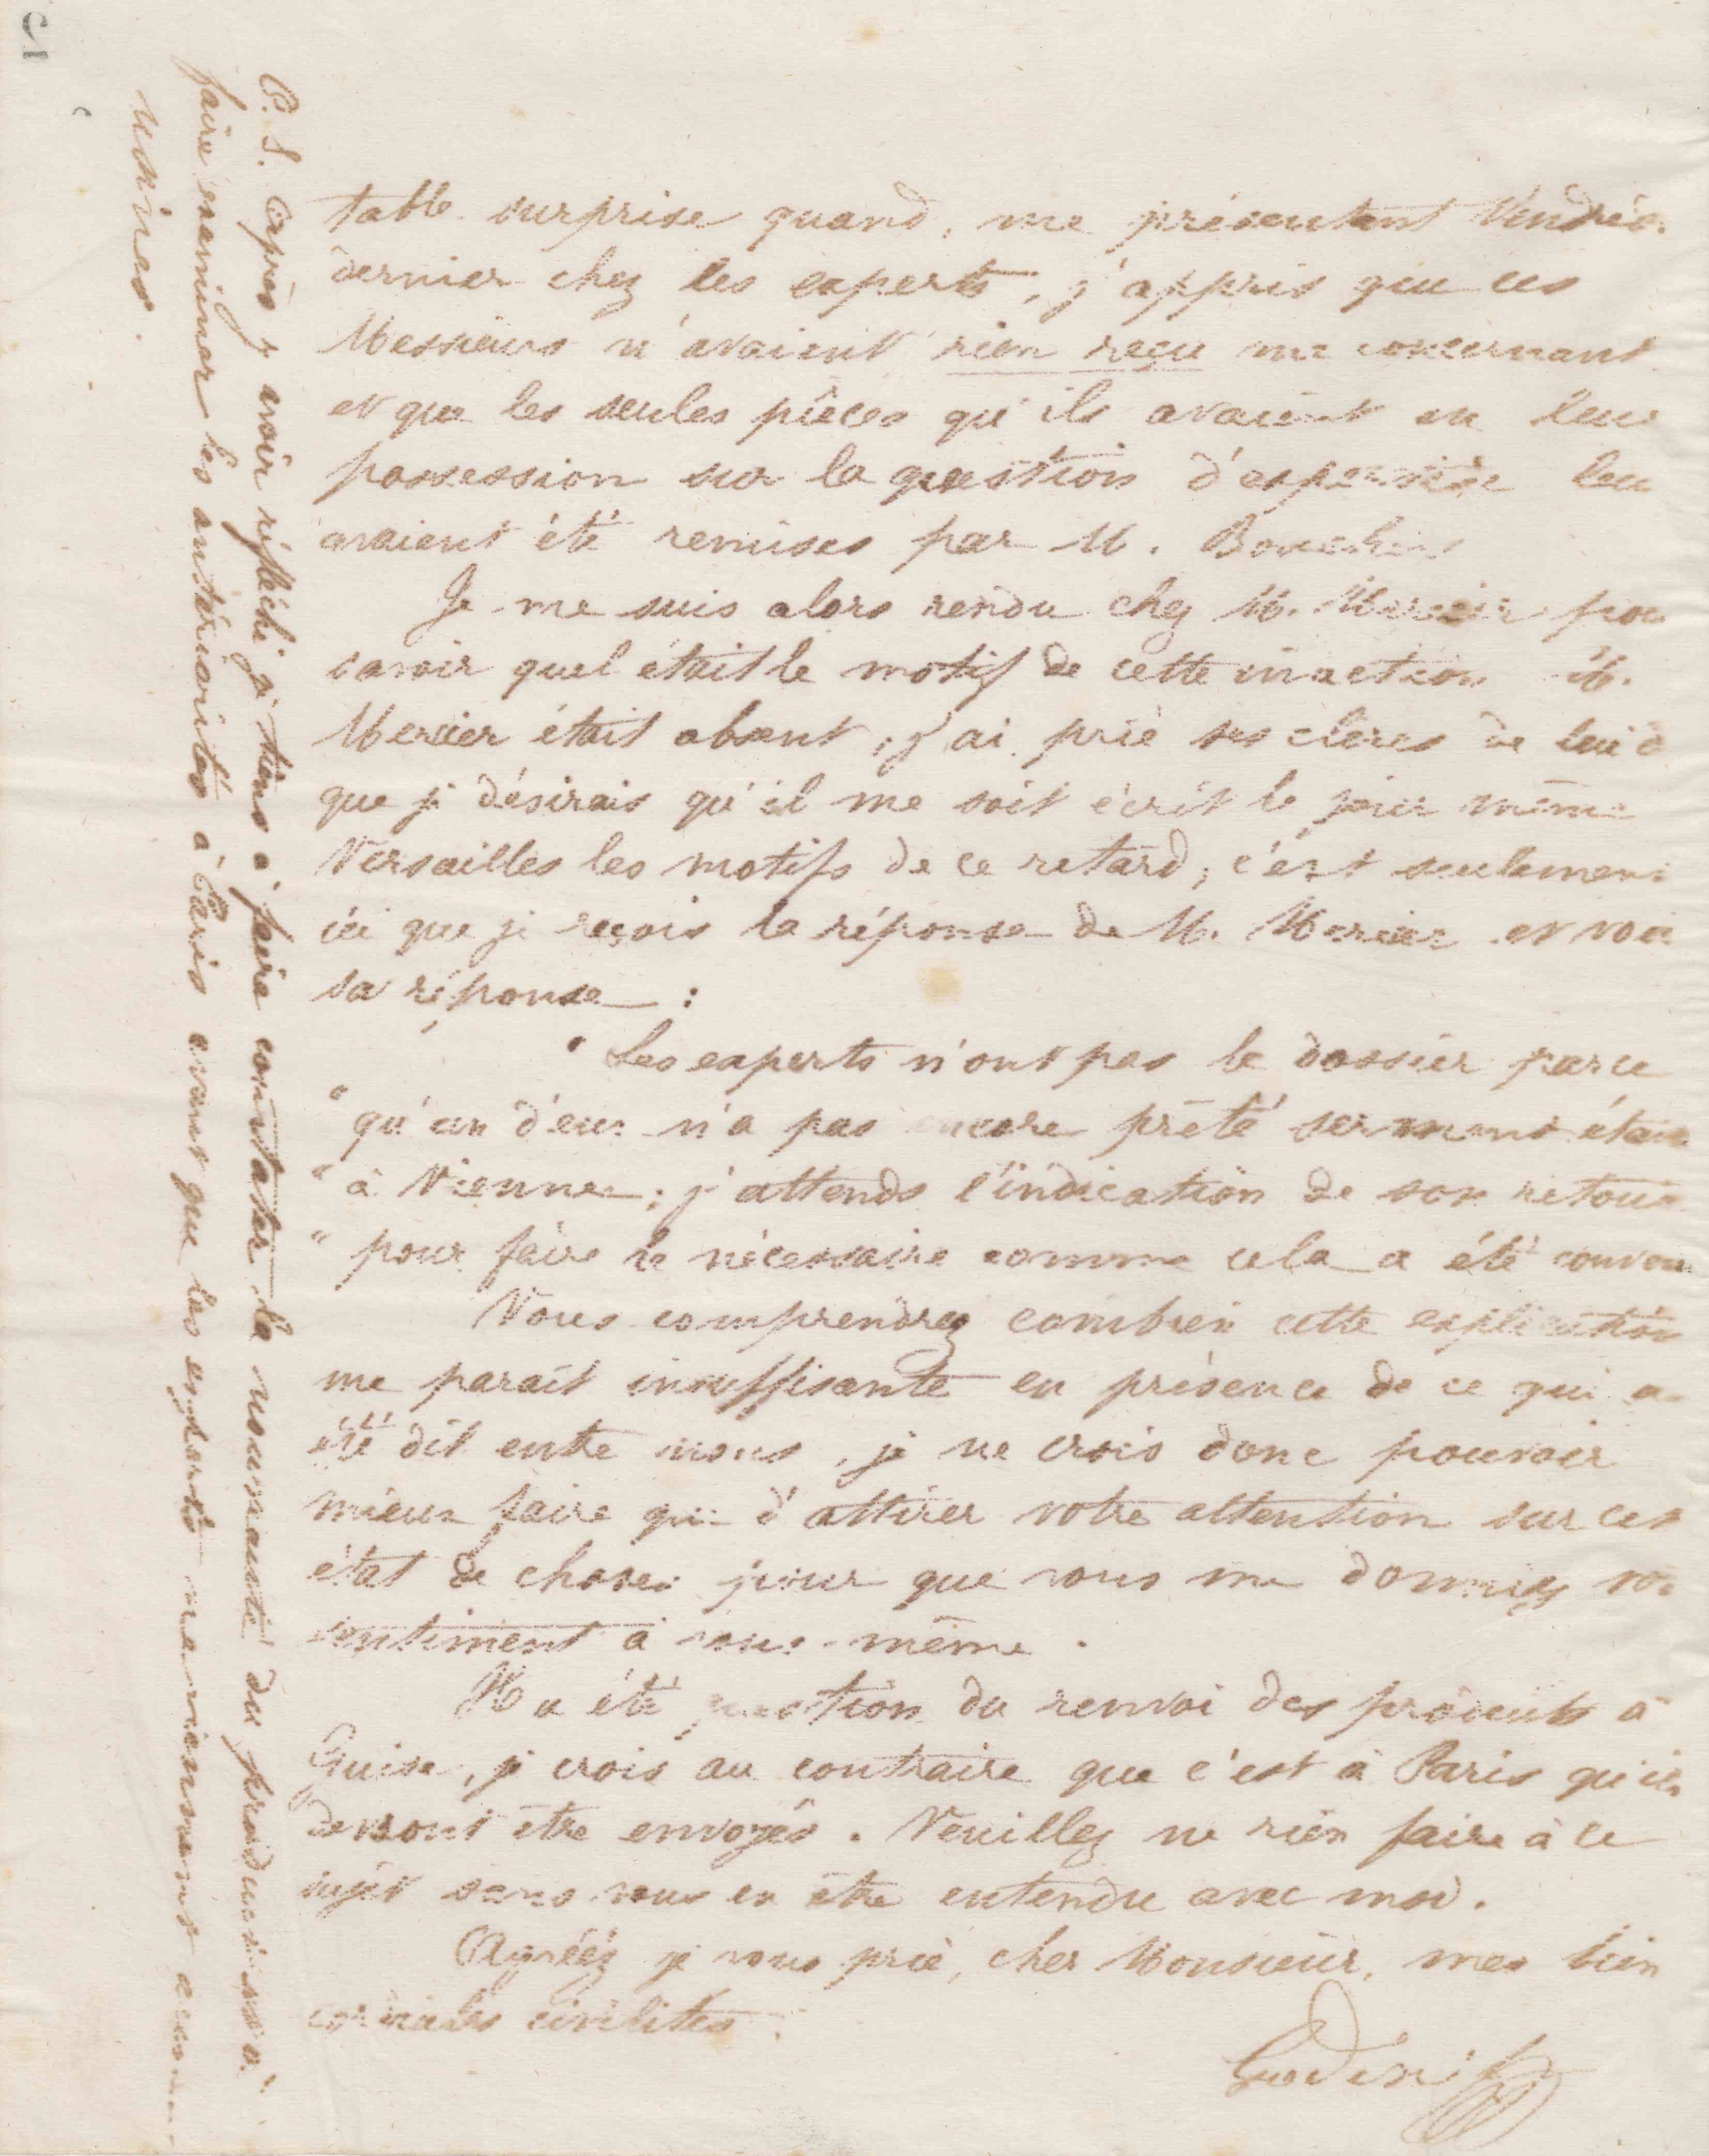 table surprise quand, me présentant Vendredi
dernier chez les experts, j'appris que ces
Messieurs n'avaient rien reçu me concernant
et que les seules pièces qu'ils avaient en leur
possession sur la question d'expertise leur
avaient été remises par M.
Je me suis alors rendu chez M. Mercier pour
savoir quel était le motif de cette inaction M.
Mercier était absent, j'ai prié ses clercs de lui d
que je désirais qu'il me soit écrit le jour même
Versailles les motifs de ce retard, c'est seulement
ici que je reçois la réponse de M. Mercier et voici
sa réponse :
" Les experts n'ont pas le dossier parce
" qu'un d'eux n'a pas encore prêté serment étant
" à Vienne ; j'attends l'indication de son retour
" pour faire le nécessaire comme cela a été convenu
Vous comprendrez combien cette explication
me parait insuffisante en présence de ce qui a
été dit entre nous, je ne crois donc pouvoir
mieux faire que d'attirer votre attention sur cet
état de choses pour que vous me donniez vo
sentiment à vous-même.
Il a été question du renvoi des produits à
Guise, je crois au contraire que c'est à Paris qu'ils
devront être envoyés. Veuillez ne rien faire à ce
sujet sans vous en être entendu avec moi.
Agréez je vous prie, cher Monsieur, mes bien
cordiales civilités.
Godin
P. S. Après y avoir réfléchi je tiens à faire constater la nouveauté du produit et à
faire examiner les antériorités à Paris avant que les experts ne viennent aux
usines.